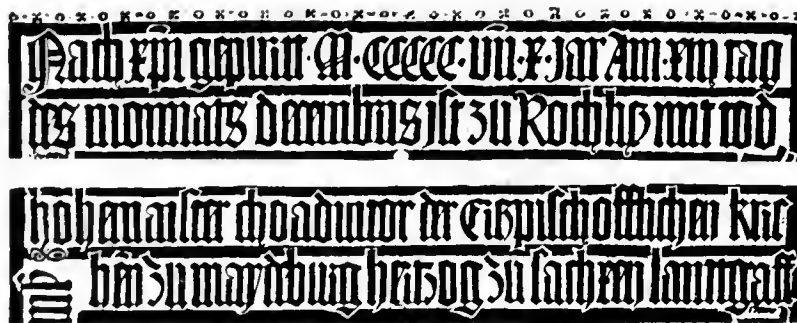 Nach xp̄i gepurtt · M · CCCCC · vn̄ · x · jar Am · xiiij tag
des monnats decembris ist zu Rochlitz mit tod
hohemaister choadiutor der Ertzpischofflichen kir
chen zu maydeburg hertzog zu sachssen lanntgraff